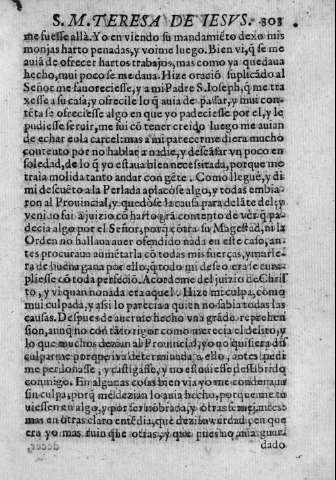 S. M. TERESA DE IESVS. 303
me fuesse allà. Yo en viendo su mandamiẽto dexo mis
monjas harto penadas, y voime luego. Bien vi, q̃ se me
auiã de ofrecer hartos trabajos, mas como ya quedaua
hecho, mui poco se me daua. Hize oraciõ suplicãdo al
Señor me fauoreciesse, y a mi Padre S. Ioseph, q̃ me tra
xesse a su casa, y ofrecile lo q̃ auia de passar, y mui con
tẽta se ofreciesse algo en que yo padeciesse por el, y le
pudiesse seruir, me fui cõ tener creido luego me auian
de echar en la carcel, mas a mi parecer me diera mucho
contento por no hablar a nadie, y descãsar vn poco en
soledad, de lo q̃ yo estaua bien necessitada, porque me
traia molida tanto andar con gẽte. Como lleguè, y di
mi descuẽto a la Perlada aplacòse algo, y todas embia-
ron al Prouincial, y quedòse la causa para delãte del; y
venido fui a juizio cõ harto grã contento de ver q̃ pa-
decia algo por el Señor, porq̃ cõtra su Magestad, ni la
Orden no hallaua auer ofendido nada en este caso, an-
tes procuraua aumẽtarla cõ todas mis fuerças, y murie-
ra de buena gana por ello, q̃ todo mi desseo era se cum-
pliesse cõ toda perfeciõ. Acordème del juizio de Chris-
to, y vi quan nonada era aquel. Hize mi culpa, como
mui culpada, y assi lo parecia a quien no sabia todas las
causas. Despues de auerme hecho vna grãde reprehen
sion, aunq̃ no con tãto rigor como merecia el delito, y
lo que muchos dezian al Prouincial, yo no quisiera dis
culparme, porque iva determinada a ello, antes pedi
me perdonasse, y castigasse, y no estuuiesse dessabrido
conmigo. En algunas cosas bien via yo me condenauan
sin culpa, porq̃ me dezian lo auia hecho, porque me tu
uiessen en algo, y por ser nõbrada, y otras semejantes,
mas en otras claro entẽdia, que dezian verdad, en que
era yo mas ruin que otras, y que pues no auia guar-
dado